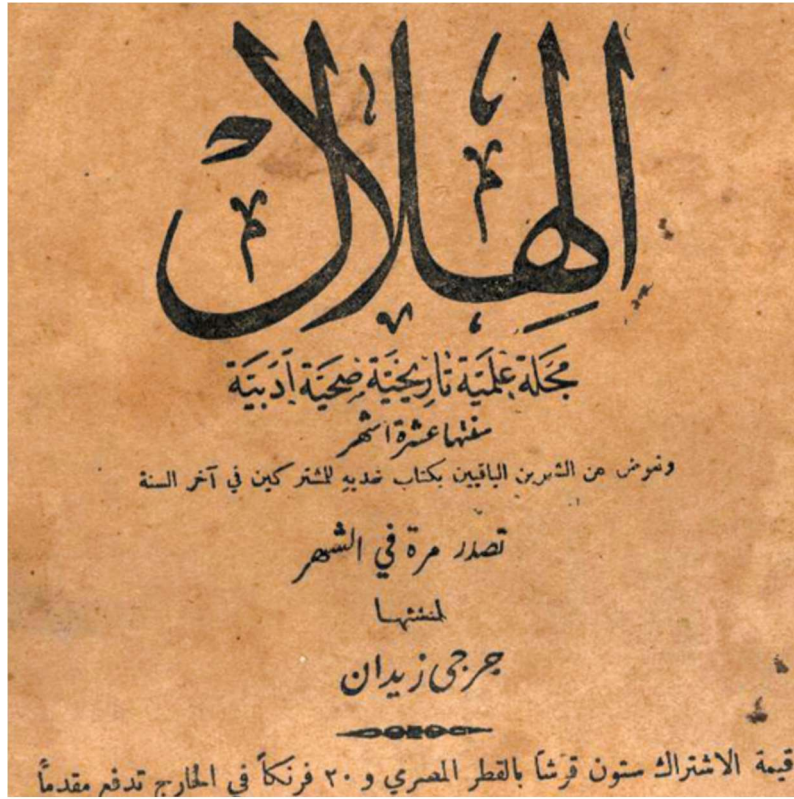 الهلال
مجلة علمية تاريخية صحية أدبية
سنتها عشرة اشهر
ونعوض عن الشهرين الباقيين بكتاب نهديه للمشتركين في آخر السنة
تصدر مرة في الشهر
لمنشئها
جرجي زيدان
قيمة الاشتراك ستون قرشاً بالقطر المصري و ٢٠ فرنكاً في الخارج تدفع مقدماً